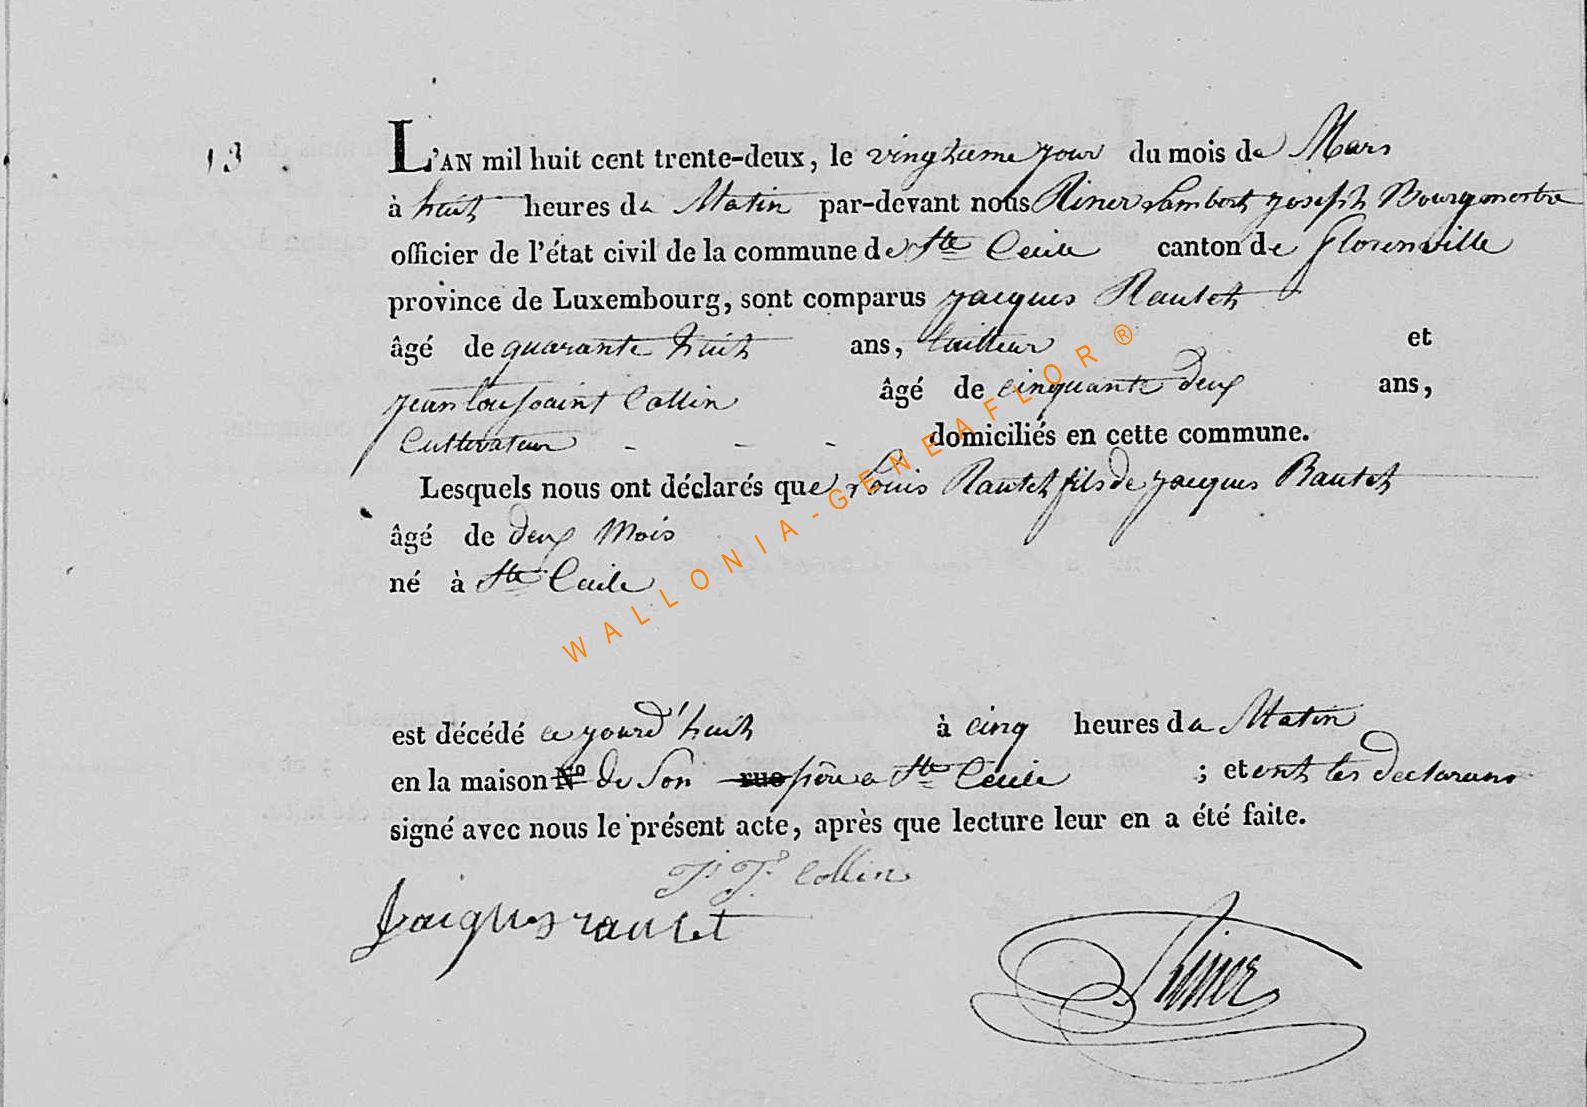 13
L'AN mil huit cent trente-deux, le vingtieme jour du mois de Mars
à huit heures du Matin par-devant nous Riner Lambert Joseph Bourgmestre
officier de l'état civil de la commune de Ste Cecile canton de Florenville
province de Luxembourg, sont comparus Jacques Rautet
âgé de quarante huit ans, tailleur et
Jean toussaint Collin âgé de cinquante deux ans,
Cultivateur - - - domiciliés en cette commune.
Lesquels nous ont déclarés que Louis Rautet fils de Jacques Rautet
âgé de deux Mois
né à Ste Cecile
est décédé ce jourd'huit à cinq heures du Matin
en la maison N° de Son rue père a Ste Cecile ; et ont les declarans
signé avec nous le présent acte, après que lecture leur en a été faite.
Jn Ts Collin
Jaiques rautet
Riner
WALLONIA-GENEAFLOR®